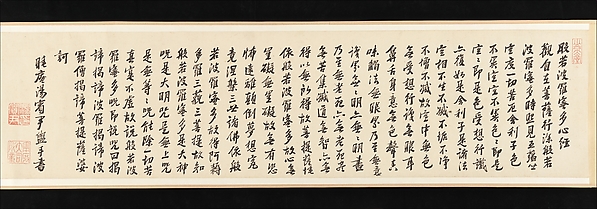 般若波羅蜜多心經
觀自在菩薩行深般若
波羅蜜多時照見五蘊皆
空度一切苦厄舍利子色
不異空空不異色色即是
空空即是色受想行識
亦復如是舍利子是諸法
空相不生不滅不垢不淨
不增不減是故空中無色
無受想行識無眼耳
鼻舌身意無色聲香
味觸法無眼界乃至無意
識界無無明亦無無明盡
乃至無老死亦無老死盡
無苦集滅道無智亦無
得以無所得故菩提薩埵
依般若波羅蜜多故心無
罣礙無罣礙故無有恐
怖遠離顛倒夢想究
竟涅槃三世諸佛依般
若波羅蜜多故得阿耨
多羅三藐三菩提故知
般若波羅蜜多是大神
呪是大明呪是無上呪
是無等等呪能除一切苦
真實不虛故說般若波
羅蜜多呪即說呪曰揭
諦揭諦波羅揭諦波
羅僧揭諦菩提薩婆
訶
睡庵湯賓尹盥手書